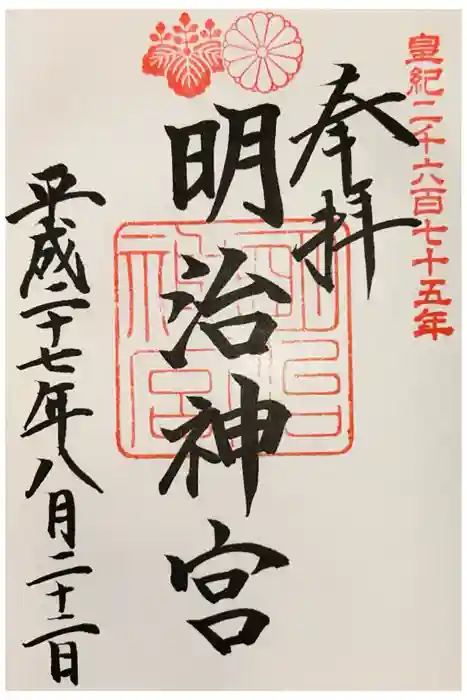 皇紀二千六百七十五年
奉拝
明治神宮
明治神宮
平成二十七年八月二十二日